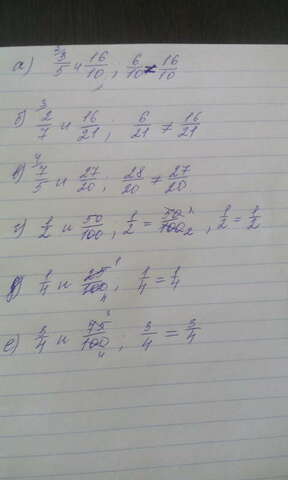 а) 3/5 и 16/10; 6/10 ≠ 16/10
б) 2/7 и 16/21; 6/21 ≠ 16/21
в) 7/5 и 27/20; 28/20 ≠ 27/20
г) 1/2 и 50/100, 1/2 = 50/100, 1/2 = 1/2
д) 1/4 и 25/100; 1/4 = 1/4
е) 3/4 и 75/100; 3/4 = 3/4